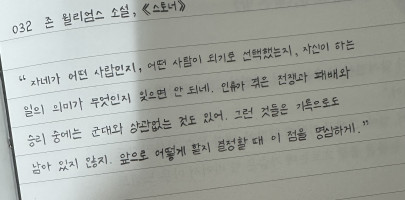 032 존 윌리엄스 소설, 《스토너》
“자네가 어떤 사람인지, 어떤 사람이 되기로 선택했는지, 자신이 하는
일의 의미가 무엇인지 잊으면 안 되네. 인류가 겪은 전쟁과 패배와
승리 중에는 군대와 상관없는 것도 있어. 그런 것들은 기록으로도
남아 있지 않지. 앞으로 어떻게 할지 결정할 때 이 점을 명심하게.”